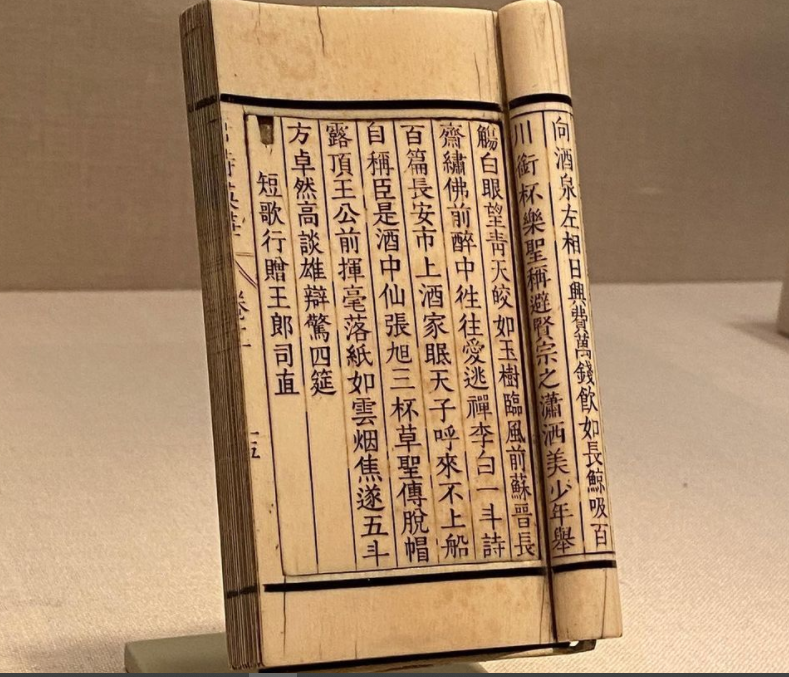 向酒泉左相日興費萬錢飲如長鯨吸百
川銜杯樂聖稱避賢宗之瀟洒美少年舉
觴白眼望青天皎如玉樹臨風前蘇晉長
齋繡佛前醉中徃往愛逃禪李白一斗詩
百篇長安市上酒家眠天子呼來不上船
自稱臣是酒中仙張旭三杯草聖傳脫帽
露頂王公前揮毫落紙如雲烟焦遂五斗
方卓然高談雄辯驚四筵
短歌行贈王郎司直